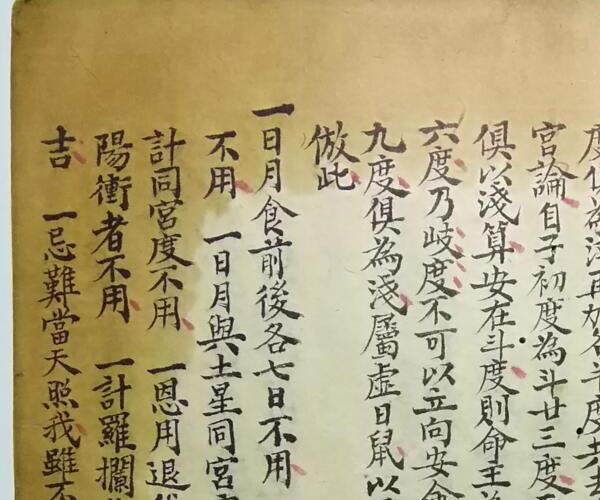 度俱為淺再加各斗度
宮論自子初度為斗廿三度
俱以淺算安在斗度則命主
六度乃岐度不可以立向安命
九度俱為淺屬虛日鼠以
倣此
一日月食前後各七日不用
不用 一日月與土星同宮
計同宮度不用 一恩用退
陽衝者不用 一計羅攔
吉 一忌難當天照我雖不